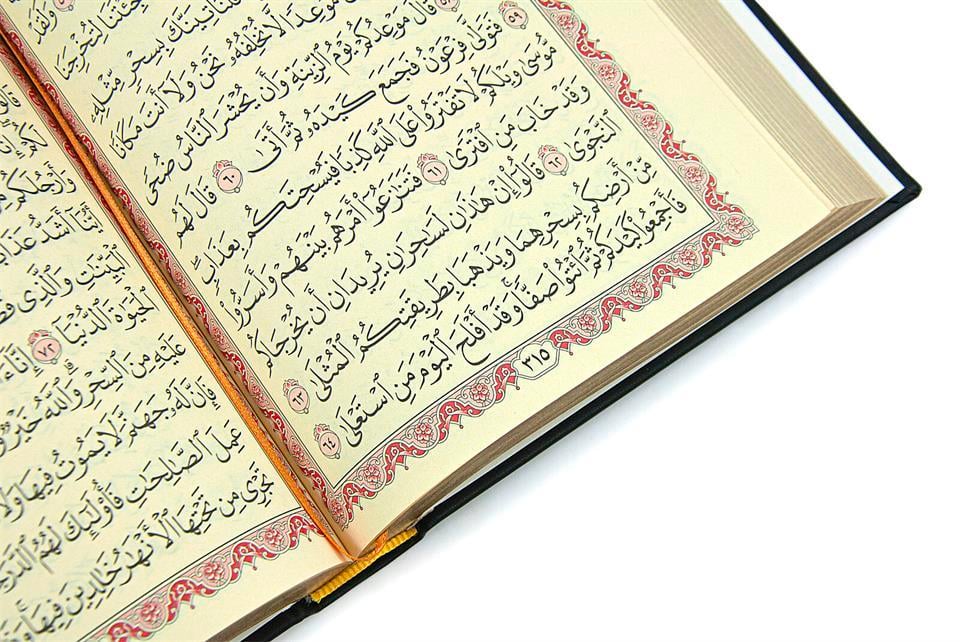 وَلَقَدْ
أَجِئْتَنَا لِتُخْرِجَنَا
فَلَنَأْتِيَنَّكَ بِسِحْرٍ مِّثْلِهِۦ
مَوْعِدًا لَّا نُخْلِفُهُۥ نَحْنُ وَلَآ أَنتَ مَكَانًا
قَالَ مَوْعِدُكُمْ يَوْمُ ٱلزِّينَةِ وَأَن يُحْشَرَ ٱلنَّاسُ ضُحًى
٥٩ فَتَوَلَّىٰ فِرْعَوْنُ فَجَمَعَ كَيْدَهُۥ ثُمَّ أَتَىٰ ٦٠ قَالَ لَهُم
مُّوسَىٰ وَيْلَكُمْ لَا تَفْتَرُوا۟ عَلَى ٱللَّهِ كَذِبًا فَيُسْحِتَكُم بِعَذَابٍ
وَقَدْ خَابَ مَنِ ٱفْتَرَىٰ ٦١ فَتَنَٰزَعُوٓا۟ أَمْرَهُم بَيْنَهُمْ وَأَسَرُّوا۟
ٱلنَّجْوَىٰ ٦٢ قَالُوٓا۟ إِنْ هَٰذَٰنِ لَسَٰحِرَٰنِ يُرِيدَانِ أَن يُخْرِجَاكُم
مِّنْ أَرْضِكُم بِسِحْرِهِمَا وَيَذْهَبَا بِطَرِيقَتِكُمُ ٱلْمُثْلَىٰ ٦٣
فَأَجْمِعُوا۟ كَيْدَكُمْ ثُمَّ ٱئْتُوا۟ صَفًّا وَقَدْ أَفْلَحَ ٱلْيَوْمَ مَنِ ٱسْتَعْلَىٰ ٦٤
٣١٥
وَأَرْجُلَكُم
أَيُّنَآ أَشَدُّ عَذَابًا
ٱلْبَيِّنَٰتِ وَٱلَّذِى
ٱلْحَيَوٰةَ ٱلدُّنْيَآ ٧٢ إِنَّآ
عَلَيْهِ مِنَ ٱلسِّحْرِ وَٱللَّهُ خَيْرٌ
فَإِنَّ لَهُۥ جَهَنَّمَ لَا يَمُوتُ فِيهَا وَلَا
عَمِلَ ٱلصَّٰلِحَٰتِ فَأُو۟لَٰٓئِكَ لَهُمُ
تَجْرِى مِن تَحْتِهَا ٱلْأَنْهَٰرُ خَٰلِدِينَ فِيهَا